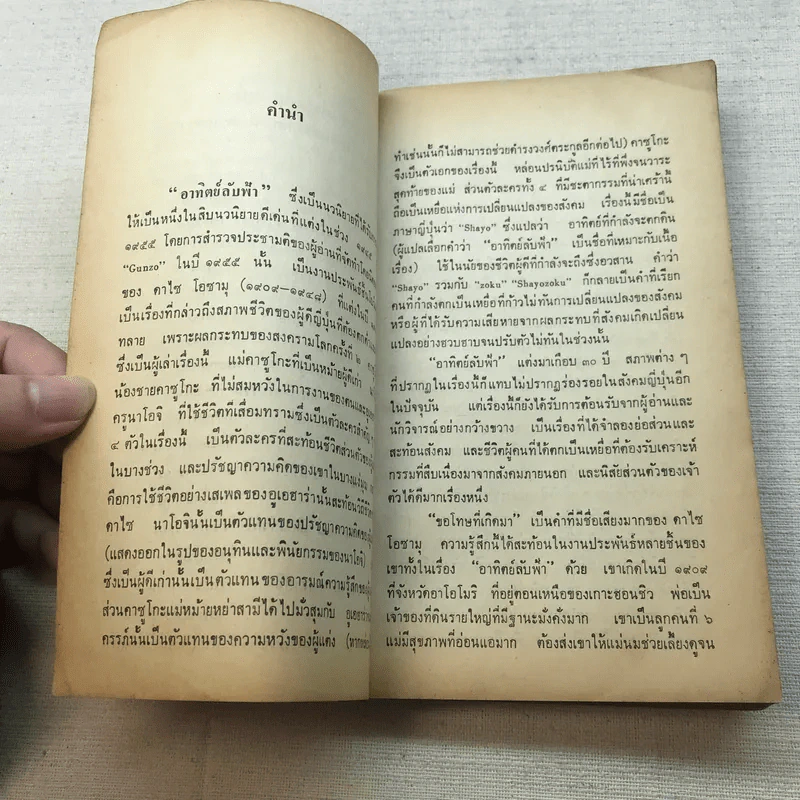 คำนำ
“อาทิตย์ลับฟ้า” ซึ่งเป็นนวนิยายที่ได้รับ
ให้เป็นหนึ่งในสิบนวนิยายดีเด่นที่แต่งในช่วง ๑๙๔๕
๑๙๕๕ โดยการสำรวจประชามติของผู้อ่านที่จัดทำโดย
“Gunzo” ในปี ๑๙๕๕ นั้น เป็นงานประพันธ์
ของ คาไซ โอซามุ (๑๙๐๙–๑๙๔๘) ที่แต่งในปี
เป็นเรื่องที่กล่าวถึงสภาพชีวิตของผู้ดีญี่ปุ่นที่ต้องตก
ทลาย เพราะผลกระทบของสงครามโลกครั้งที่ ๒
ซึ่งเป็นผู้เล่าเรื่องนี้ แม่คาซูโกะที่เป็นหม้ายผู้ดีเก่า
น้องชายคาซูโกะ ที่ไม่สมหวังในการงานของตนและ
ครูนาโอจิ ที่ใช้ชีวิตที่เสื่อมทรามซึ่งเป็นตัวละครสำคัญ
๔ ตัวในเรื่องนี้ เป็นตัวละครที่สะท้อนชีวิตส่วนตัวของ
ในบางช่วง และปรัชญาความคิดของเขาในบางแง่
คือการใช้ชีวิตอย่างเสเพลของอูเอฮาร่านั้นสะท้อนวิถีชีวิต
คาไซ นาโอจินั้นเป็นตัวแทนของปรัชญาความคิดของ
(แสดงออกในรูปของอนุทินและพินัยกรรมของนาโอจิ)
ซึ่งเป็นผู้ดีเก่านั้นเป็นตัวแทนของอารมณ์ความรู้สึกของ
ส่วนคาซูโกะแม่หม้ายหย่าสามีได้ไปมั่วสุมกับ อุเอฮารา
ครรภ์นั้นเป็นตัวแทนของความหวังของผู้แต่ง
ทำเช่นนั้นก็ไม่สามารถช่วยดำรงวงศ์ตระกูลอีกต่อไป) คาซูโกะ
จึงเป็นตัวเอกของเรื่องนี้ หล่อนปรนิบัติแม่ที่ไร้ที่พึ่งจนวาระ
สุดท้ายของแม่ ส่วนตัวละครทั้ง ๔ ที่มีชะตากรรมที่น่าเศร้านี้
ถือเป็นเหยื่อแห่งการเปลี่ยนแปลงของสังคม เรื่องนี้มีชื่อเป็น
ภาษาญี่ปุ่นว่า “Shayo” ซึ่งแปลว่า อาทิตย์ที่กำลังจะตกดิน
(ผู้แปลเลือกคำว่า “อาทิตย์ลับฟ้า” เป็นชื่อที่เหมาะกับเนื้อ
เรื่อง) ใช้ในนัยของชีวิตผู้ดีที่กำลังจะถึงซึ่งอวสาน คำว่า
“Shayo” รวมกับ “zoku” “Shayozoku” ก็กลายเป็นคำที่เรียก
คนที่กำลังตกเป็นเหยื่อที่ก้าวไม่ทันการเปลี่ยนแปลงของสังคม
หรือผู้ที่ได้รับความเสียหายจากผลกระทบที่สังคมเกิดเปลี่ยน
แปลงอย่างฮวบฮาบจนปรับตัวไม่ทันในช่วงนั้น
“อาทิตย์ลับฟ้า” แต่งมาเกือบ ๓๐ ปี สภาพต่าง ๆ
ที่ปรากฏในเรื่องนี้ก็แทบไม่ปรากฏร่องรอยในสังคมญี่ปุ่นอีก
ในปัจจุบัน แต่เรื่องนี้ก็ยังได้รับการต้อนรับจากผู้อ่านและ
นักวิจารณ์อย่างกว้างขวาง เป็นเรื่องที่ได้จำลองย่อส่วนและ
สะท้อนสังคม และชีวิตผู้คนที่ได้ตกเป็นเหยื่อที่ต้องรับเคราะห์
กรรมที่สืบเนื่องมาจากสังคมภายนอก และนิสัยส่วนตัวของเจ้า
ตัวได้ดีมากเรื่องหนึ่ง
“ขอโทษที่เกิดมา” เป็นคำที่มีชื่อเสียงมากของ คาไซ
โอซามุ ความรู้สึกนี้ได้สะท้อนในงานประพันธ์หลายชิ้นของ
เขาทั้งในเรื่อง “อาทิตย์ลับฟ้า” ด้วย เขาเกิดในปี ๑๙๐๙
ที่จังหวัดอาโอโมริ ที่อยู่ตอนเหนือของเกาะฮอนชิว พ่อเป็น
เจ้าของที่ดินรายใหญ่ที่มีฐานะมั่งคั่งมาก เขาเป็นลูกคนที่ ๖
แม่มีสุขภาพที่อ่อนแอมาก ต้องส่งเขาให้แม่นมช่วยเลี้ยงดูจน